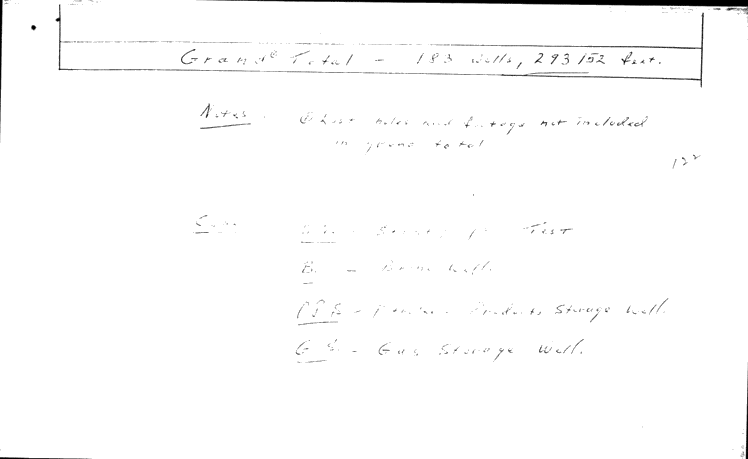 Grand Total - 183 Wells, 293152 feet.
Notes - Lost holes and footage not included
in grand total
122
Test
B. - Brine Well.
P.P.S. - Products Storage Well.
G.S. - Gas Storage Well.